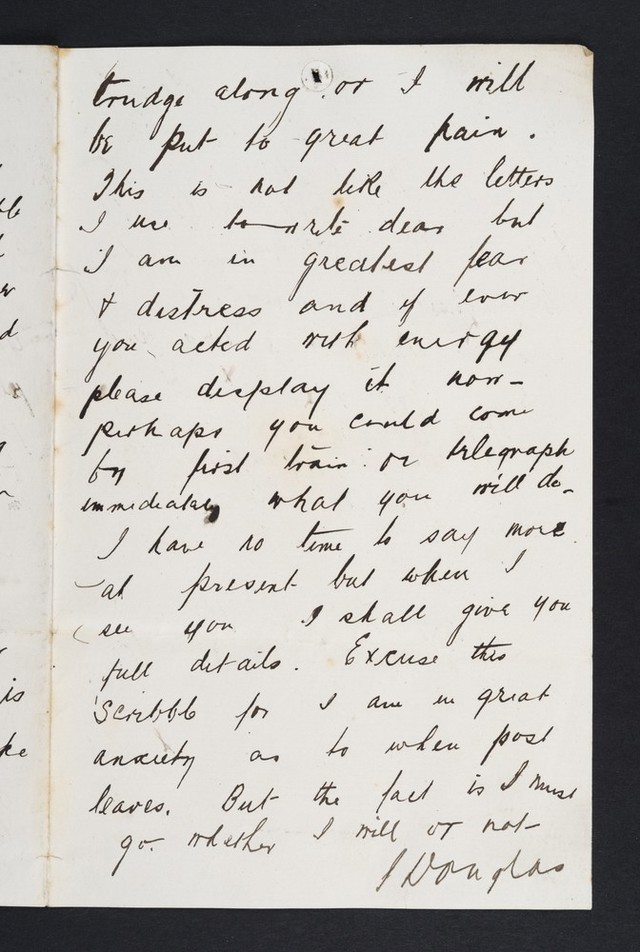 trudge along or I will
be put to great pain.
This is not like the letters
I use to write dear but
I am in greatest fear
+ distress and if ever
you acted with energy
please display it now -
perhaps you could come
by first train or telegraph
immediately what you will do -
I have no time to say more
at present but when I
see you I shall give you
full details. Excuse this
Scribble for I am in great
anxiety as to when post
leaves. But the fact is I must
go whether I will or not -
J Douglas
is
ke